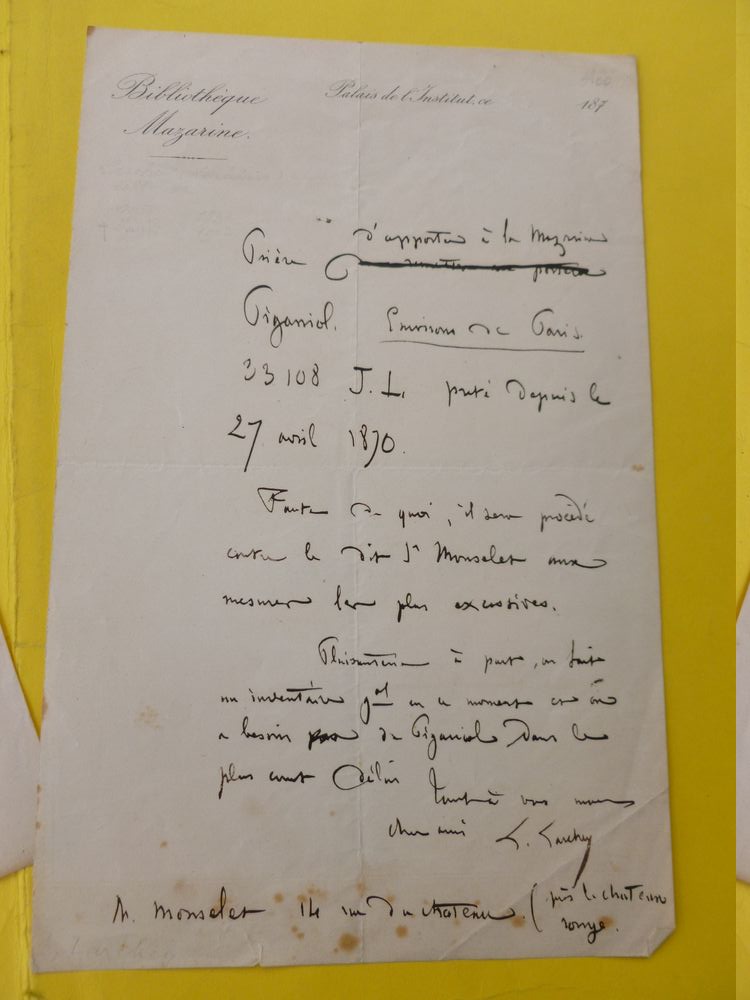 Bibliothèque
Mazarine.
Palais de l'Institut, ce
187
d'apporter à la Mazarine
Prière
Piganiol. Environs de Paris.
33108 J.L. prêté depuis le
27 avril 1870.
Faute de quoi, il sera procédé
contre le dit Sr Monselet aux
mesures les plus excessives.
Plaisanterie à part, on fait
un inventaire gal en ce moment et on
a besoin du Piganiol dans le
plus court délai
Tout à vous mon
cher ami L. Larchey
M. Monselet 14 rue du chateau. (près le chateau
rouge.
Larchey